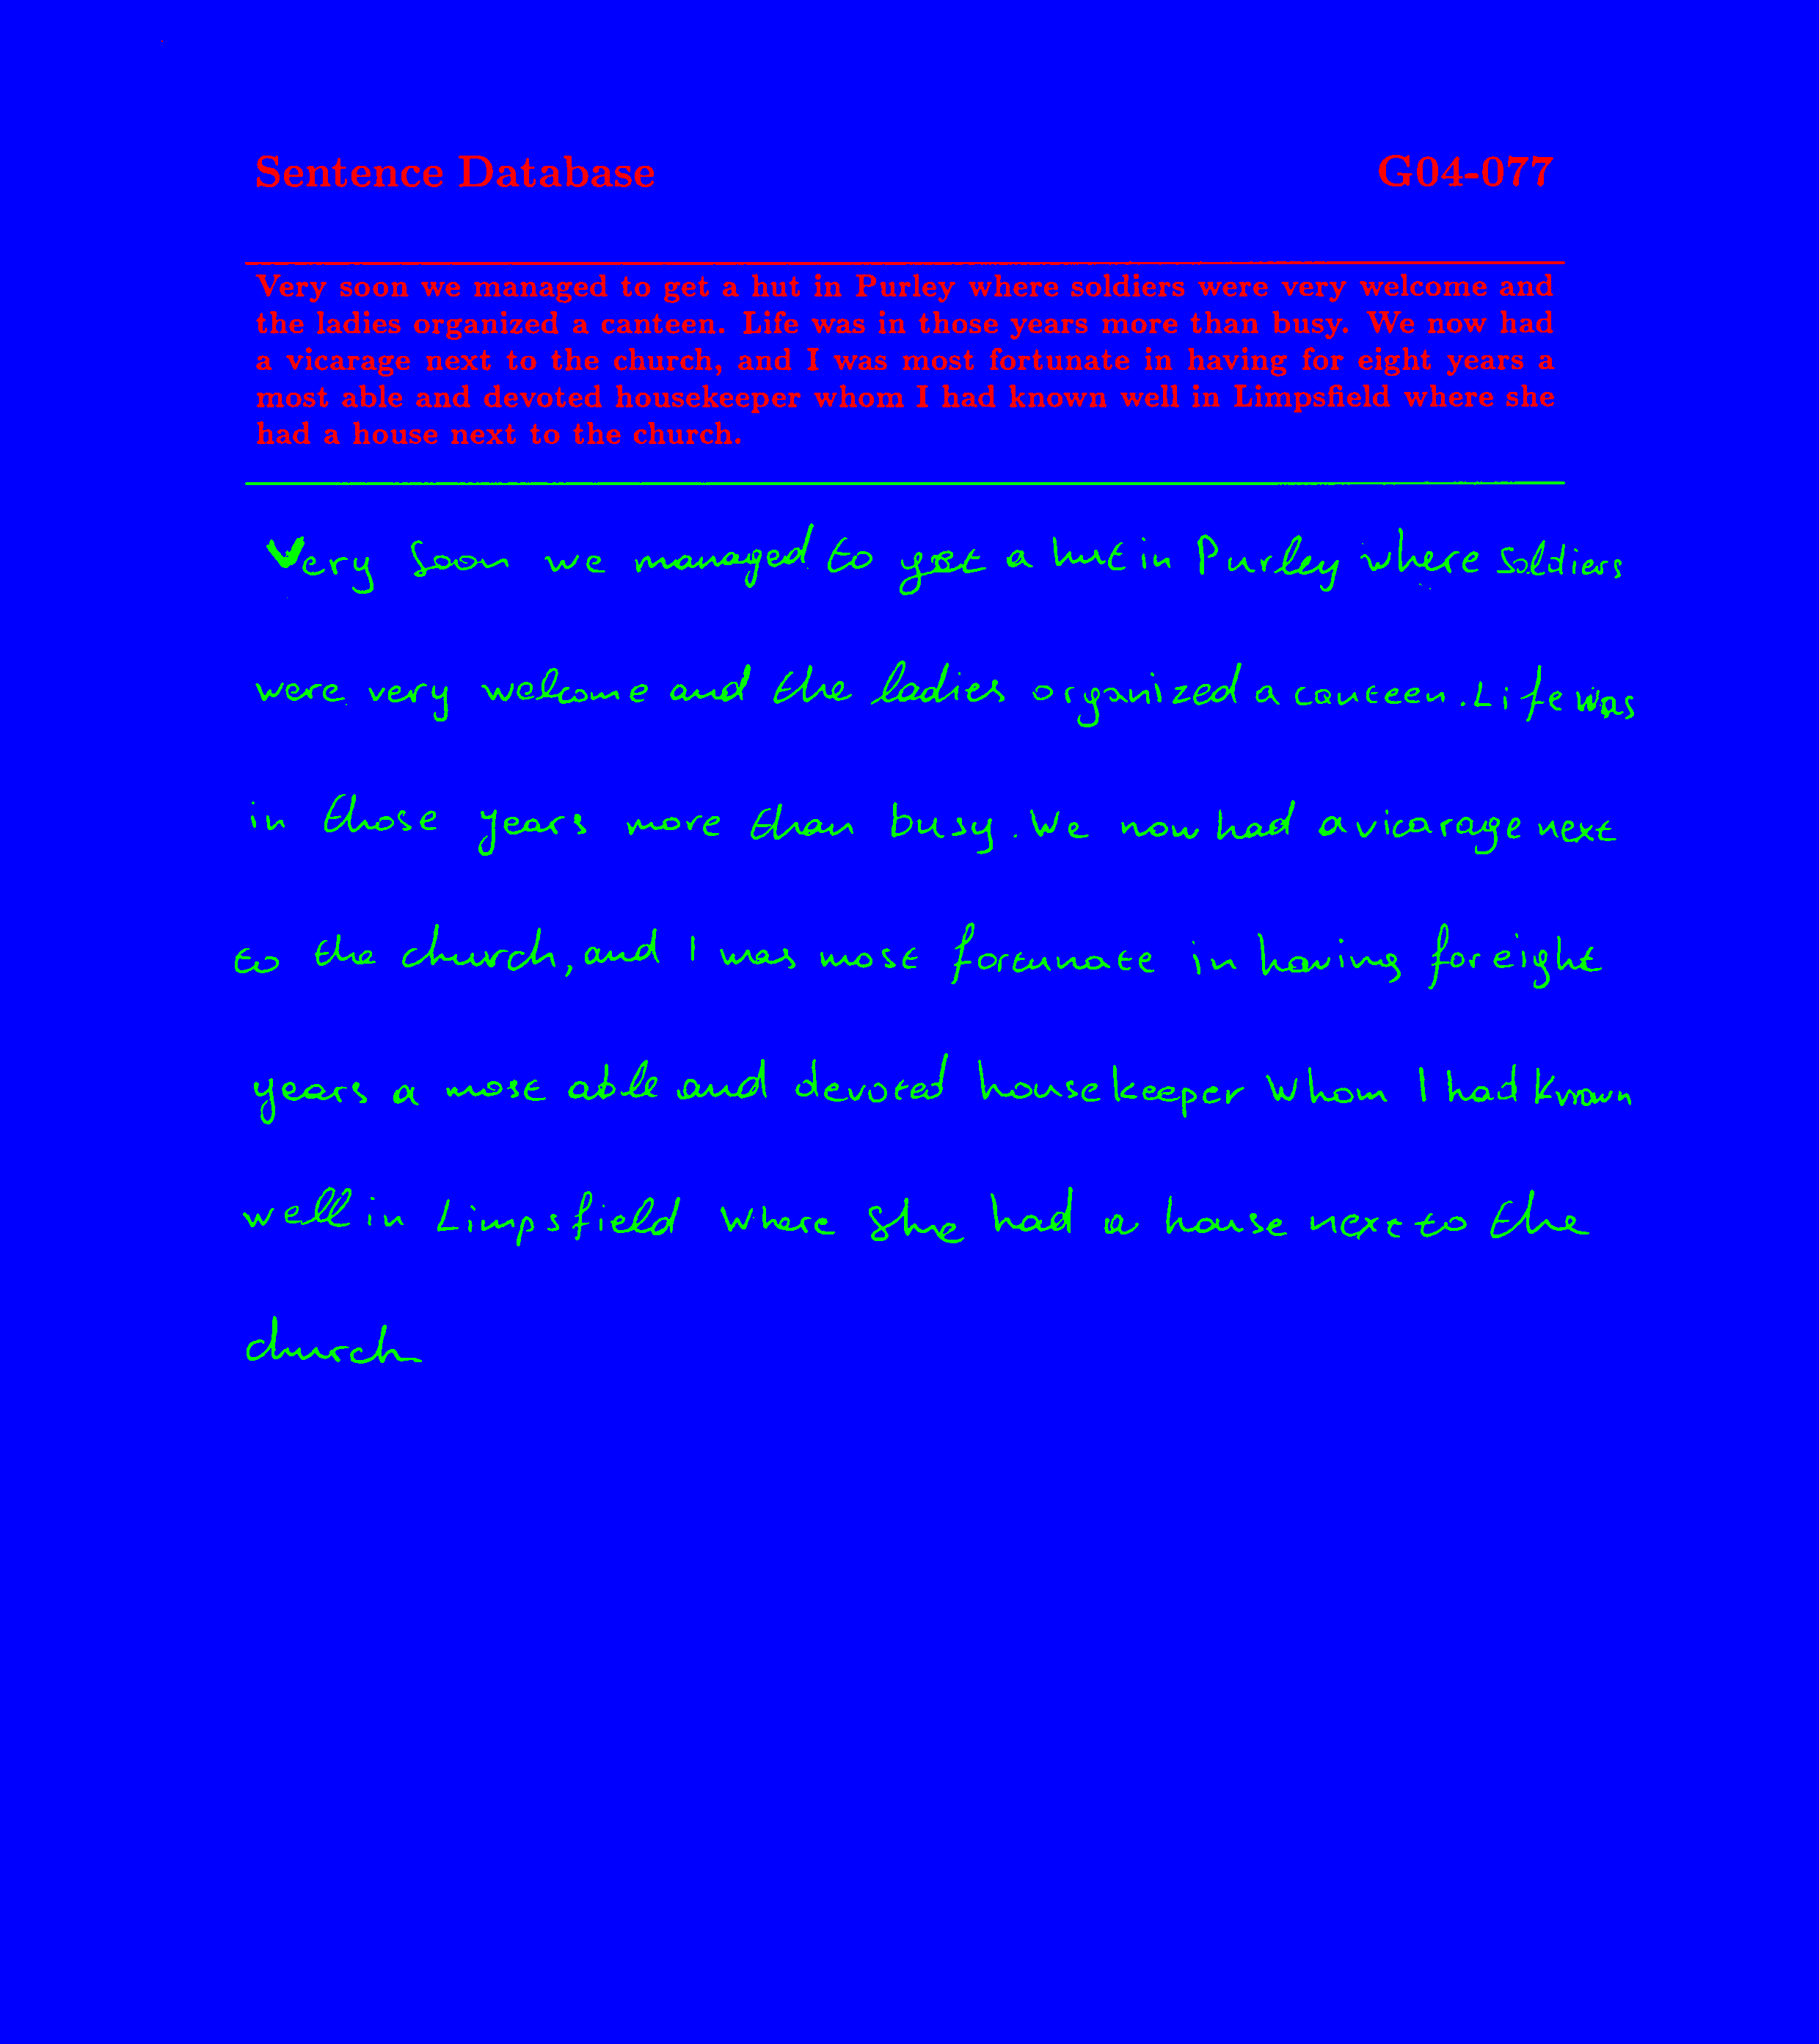 Sentence Database G04-077
Very soon we managed to get a hut in Purley where soldiers were very welcome and
the ladies organized a canteen. Life was in those years more than busy. We now had
a vicarage next to the church, and I was most fortunate in having for eight years a
most able and devoted housekeeper whom I had known well in Limpsfield where she
had a house next to the church.
Very soon we managed to get a hut in Purley where soldiers
were very welcome and the ladies organized a canteen. Life was
in those years more than busy. We now had a vicarage next
to the church, and I was most fortunate in having for eight
years a most able and devoted housekeeper whom I had known
well in Limpsfield where she had a house next to the
church